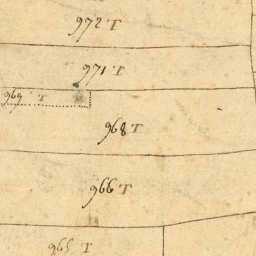 972 T
971. T
969 T
968 T
966 T
965 T